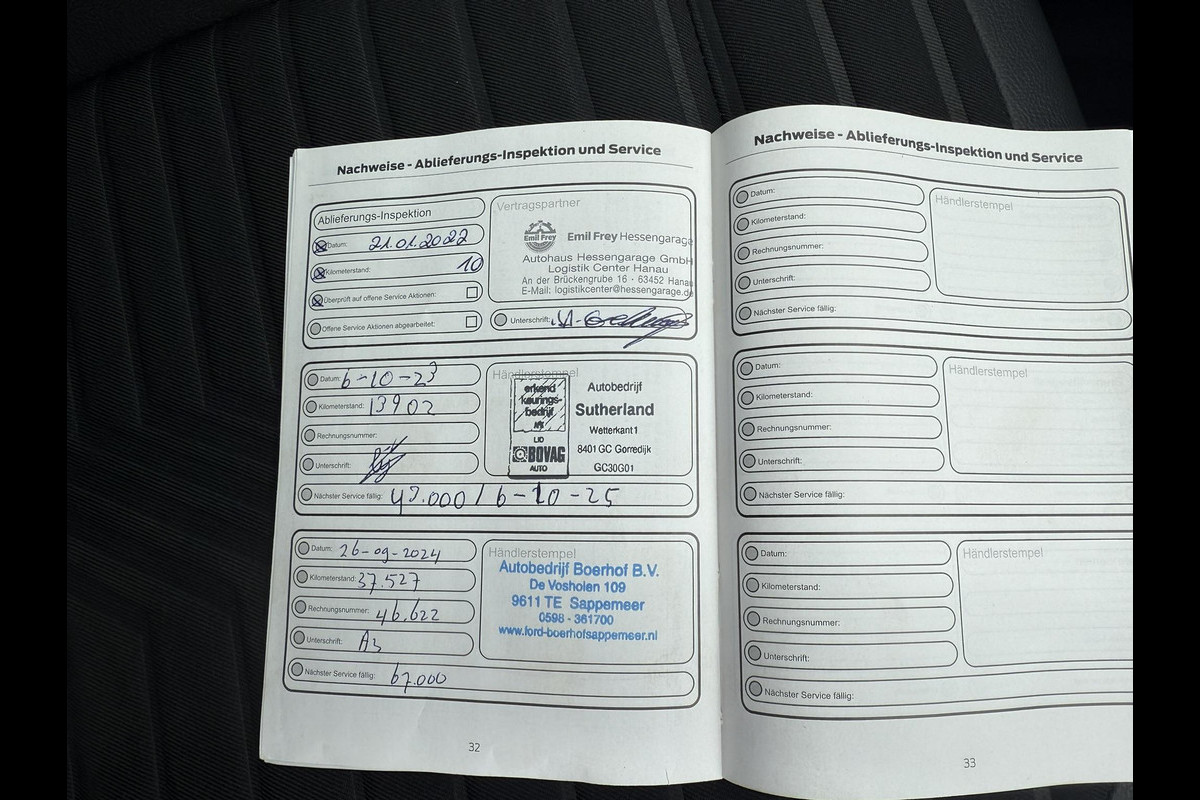 Nachweise - Ablieferungs-Inspektion und Service
Ablieferungs-Inspektion
Datum: 21.01.2022
Kilometerstand: 10
Überprüft auf offene Service Aktionen:
Offene Service Aktionen abgearbeitet:
Vertragspartner
Emil Frey
Emil Frey Hessengarage
Autohaus Hessengarage GmbH
Logistik Center Hanau
An der Brückengrube 16 · 63452 Hanau
E-Mail: logistikcenter@hessengarage.de
Unterschrift:
Datum: 6-10-23
Kilometerstand: 13902
Rechnungsnummer:
Unterschrift:
Nächster Service fällig: 43.000 / 6-10-25
Händlerstempel
erkend
keurings-
bedrijf
LID
BOVAG
AUTO
Autobedrijf
Sutherland
Wetterkant 1
8401 GC Gorredijk
GC30G01
Datum: 26-09-2024
Kilometerstand: 37.527
Rechnungsnummer: 46.622
Unterschrift:
Nächster Service fällig: 67.000
Händlerstempel
Autobedrijf Boerhof B.V.
De Vosholen 109
9611 TE Sappemeer
0598 - 361700
www.ford-boerhofsappemeer.nl
32
Nachweise - Ablieferungs-Inspektion und Service
Datum:
Kilometerstand:
Rechnungsnummer:
Unterschrift:
Nächster Service fällig:
Händlerstempel
Datum:
Kilometerstand:
Rechnungsnummer:
Unterschrift:
Nächster Service fällig:
Händlerstempel
Datum:
Kilometerstand:
Rechnungsnummer:
Unterschrift:
Nächster Service fällig:
Händlerstempel
33